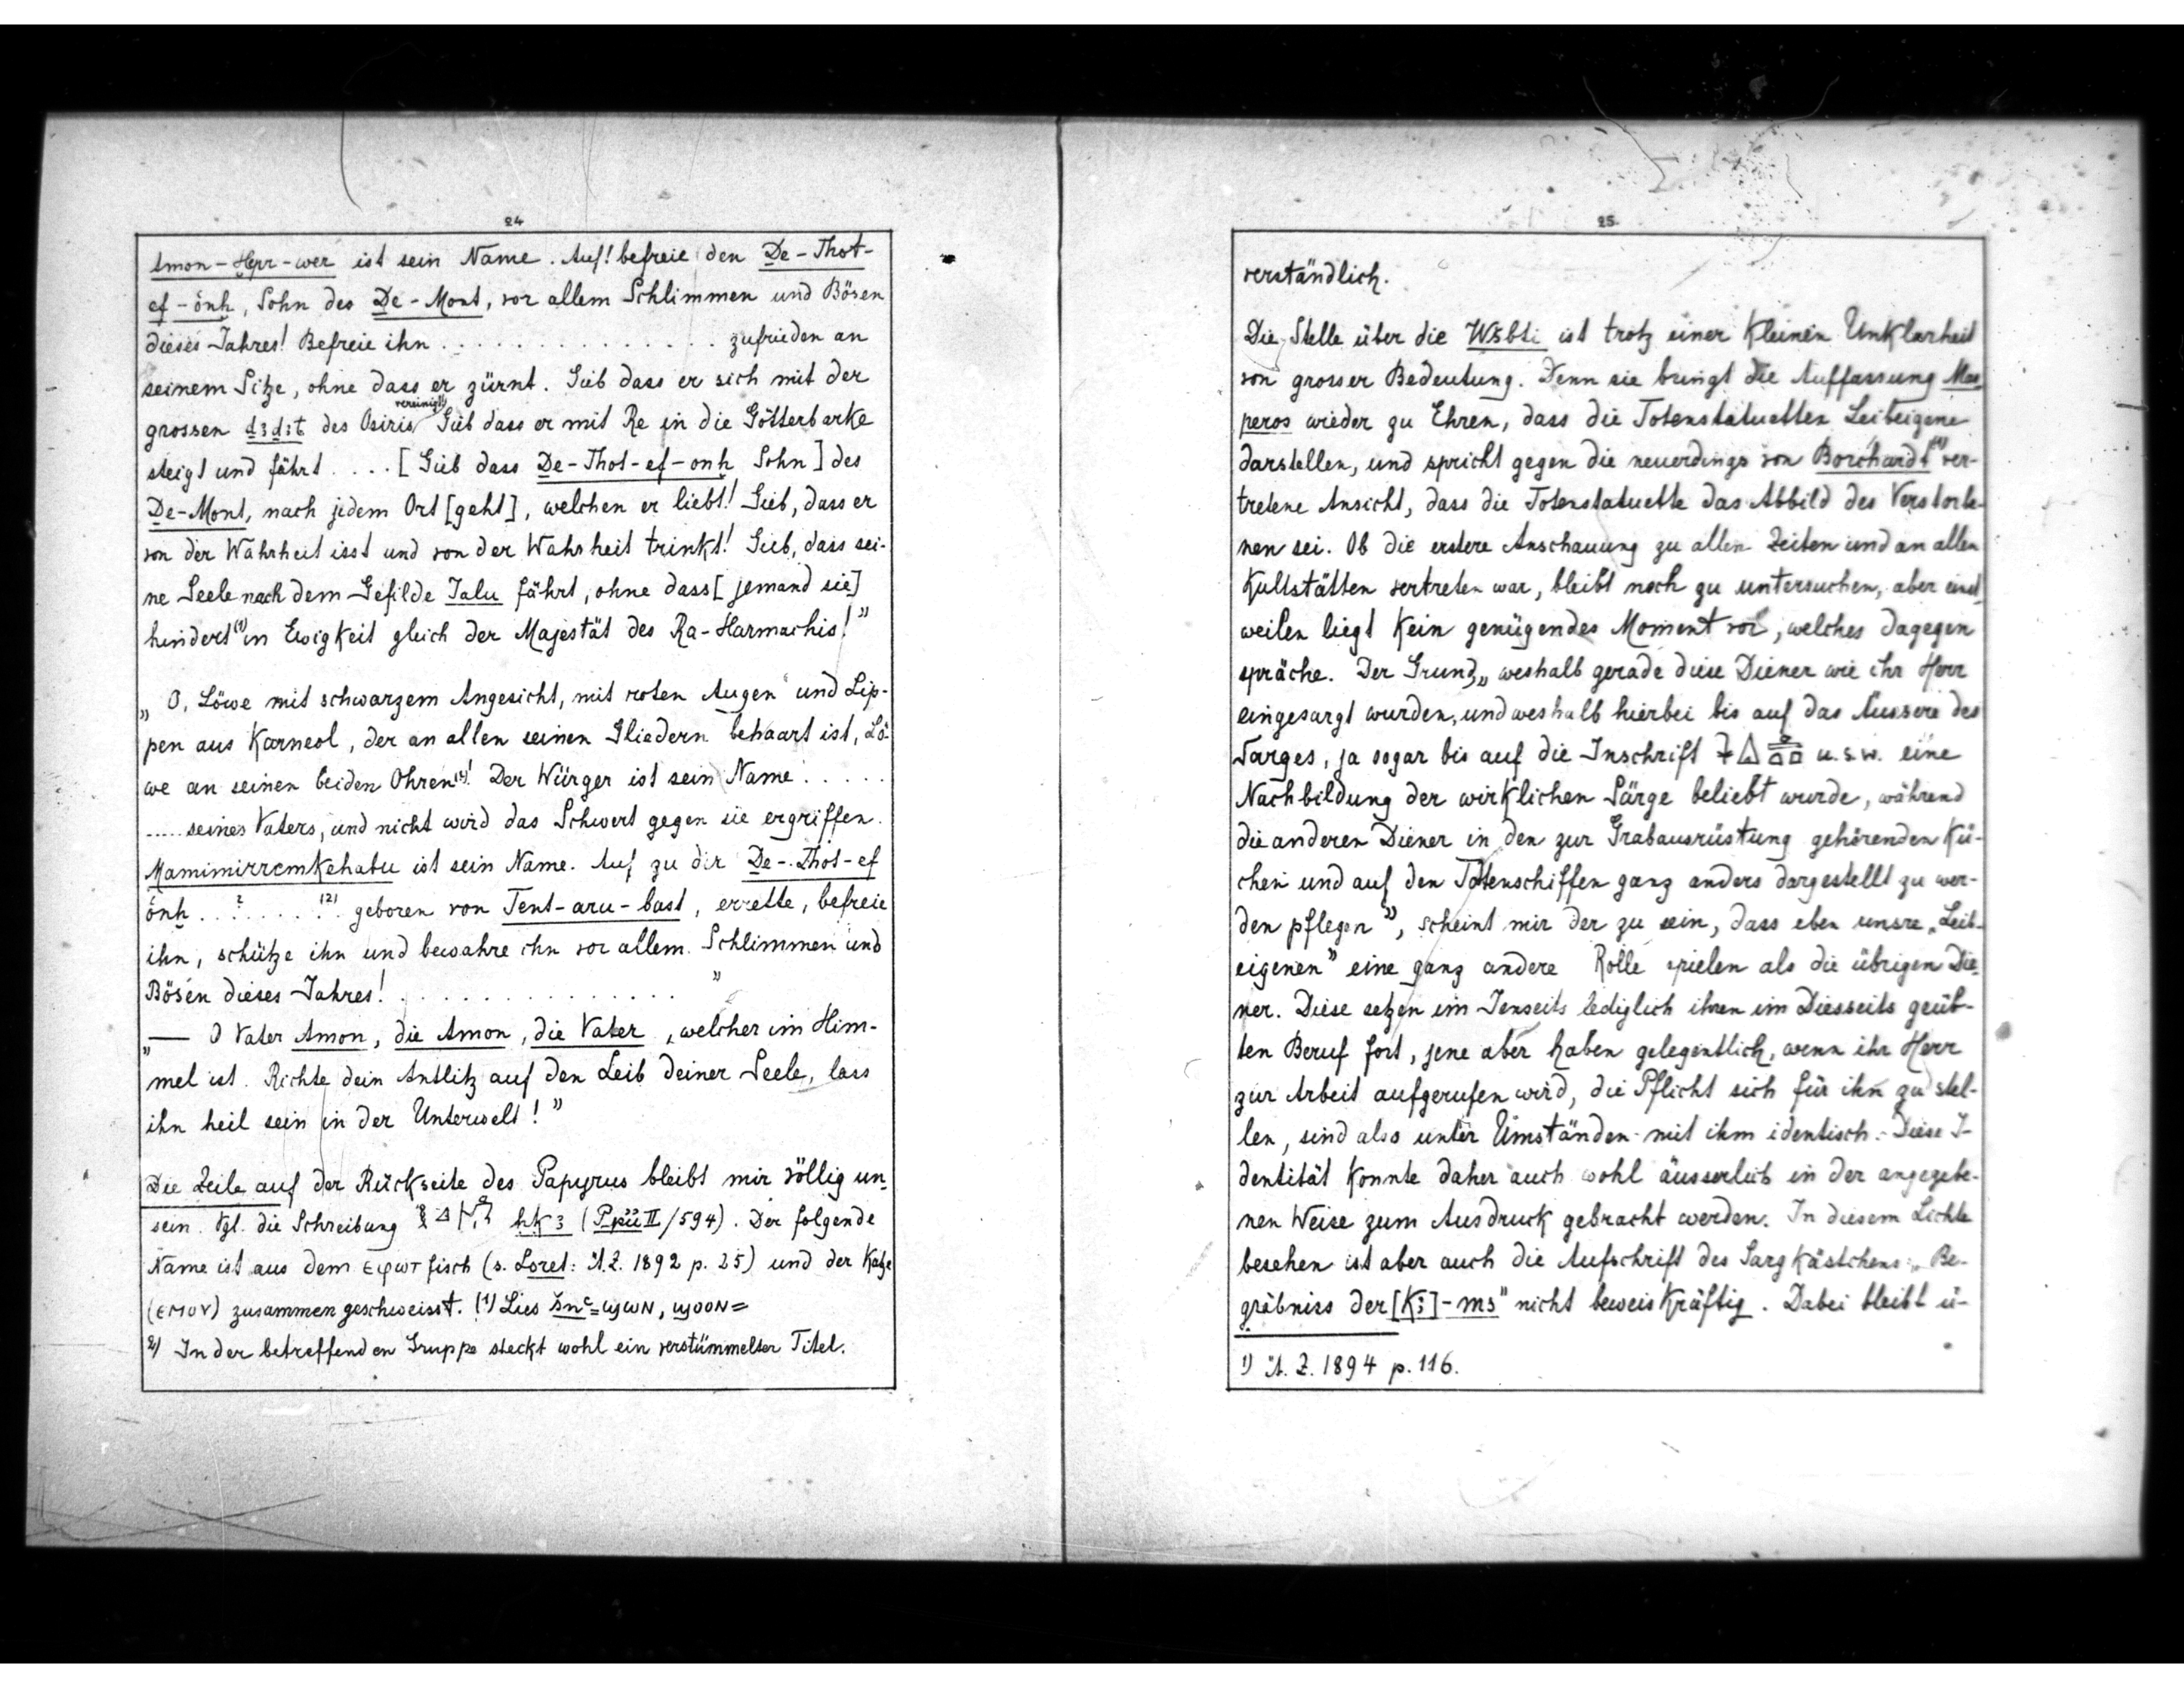 24
Amon-Hepr-wer ist sein Name. Auf! befreie den De-Thot-
ef-önḫ, Sohn des De-Mont, vor allem Schlimmen und Bösen
dieses Jahres! Befreie ihn . . . . . . . . . . . . . . . zufrieden an
seinem Sitze, ohne dass er zürnt. Gieb dass er sich mit der
grossen d3d3t des Osiris vereinigt! Gieb dass er mit Re in die Götterbarke
steigt und fährt . . . . [Gieb dass De-Thot-ef-onḫ Sohn] des
De-Mont, nach jedem Ort [geht], welchen er liebt! Gieb, dass er
von der Wahrheit isst und von der Wahrheit trinkt! Gieb, dass sei-
ne Seele nach dem Gefilde Jalu fährt, ohne dass [jemand sie]
hindert (1) in Ewigkeit gleich der Majestät des Ra-Harmachis!"
„O, Löwe mit schwarzem Angesicht, mit roten Augen und Lip-
pen aus Karneol, der an allen seinen Gliedern behaart ist, Lö-
we an seinen beiden Ohren! Der Würger ist sein Name . . . . .
..... seines Vaters, und nicht wird das Schwert gegen sie ergriffen.
Mamimirremkehabu ist sein Name. Auf zu dir De-Thot-ef
önḫ . . ? . . . . (2) geboren von Tent-aru-bast, errette, befreie
ihn, schütze ihn und bewahre ihn vor allem Schlimmen und
Bösen dieses Jahres! . . . . . . . . . . . . . . . "
„— O Vater Amon, die Amon, die Vater, welcher im Him-
mel ist. Richte dein Antlitz auf den Leib deiner Seele, lass
ihn heil sein in der Unterwelt!"
Die Zeile auf der Rückseite des Papyrus bleibt mir völlig un-
sein. Vgl. die Schreibung hk3 (Ppii II/594). Der folgende
Name ist aus dem ⲉϥⲱⲧ fisch (s. Loret: Ä.Z. 1892 p. 25) und der Katze
(ⲉⲙⲟⲩ) zusammengeschweisst. (1) Lies šnꜥ = ϣⲱⲛ, ϣⲟⲟⲛ=
2) In der betreffenden Gruppe steckt wohl ein verstümmelter Titel.
25
verständlich.
Die Stelle über die Wšbti ist trotz einer kleinen Unklarheit
von grosser Bedeutung. Denn sie bringt die Auffassung Mas-
peros wieder zu Ehren, dass die Totenstatuetten Leibeigene
darstellen, und spricht gegen die neuerdings von Borchardt (1) ver-
tretene Ansicht, dass die Totenstatuette das Abbild des Verstorbe-
nen sei. Ob die erstere Anschauung zu allen Zeiten und an allen
Kultstätten vertreten war, bleibt noch zu untersuchen, aber einst-
weilen liegt kein genügendes Moment vor, welches dagegen
spräche. Der Grund, „weshalb gerade diese Diener wie ihr Herr
eingesargt wurden, und weshalb hierbei bis auf das Äussere des
Sarges, ja sogar bis auf die Inschrift u.s.w. eine
Nachbildung der wirklichen Särge beliebt wurde, während
die anderen Diener in den zur Grabausrüstung gehörenden Kü-
chen und auf den Totenschiffen ganz anders dargestellt zu wer-
den pflegen", scheint mir der zu sein, dass eben unsre „Leib-
eigenen" eine ganz andere Rolle spielen als die übrigen Die-
ner. Diese setzen im Jenseits lediglich ihren im Diesseits geüb-
ten Beruf fort, jene aber haben gelegentlich, wenn ihr Herr
zur Arbeit aufgerufen wird, die Pflicht sich für ihn zu stel-
len, sind also unter Umständen mit ihm identisch. Diese I-
dentität konnte daher auch wohl äusserlich in der angegebe-
nen Weise zum Ausdruck gebracht werden. In diesem Lichte
besehen ist aber auch die Aufschrift des Sargkästchens: „Be-
gräbniss der [K3]-ms" nicht beweiskräftig. Dabei bleibt ü-
1) Ä. Z. 1894 p. 116.